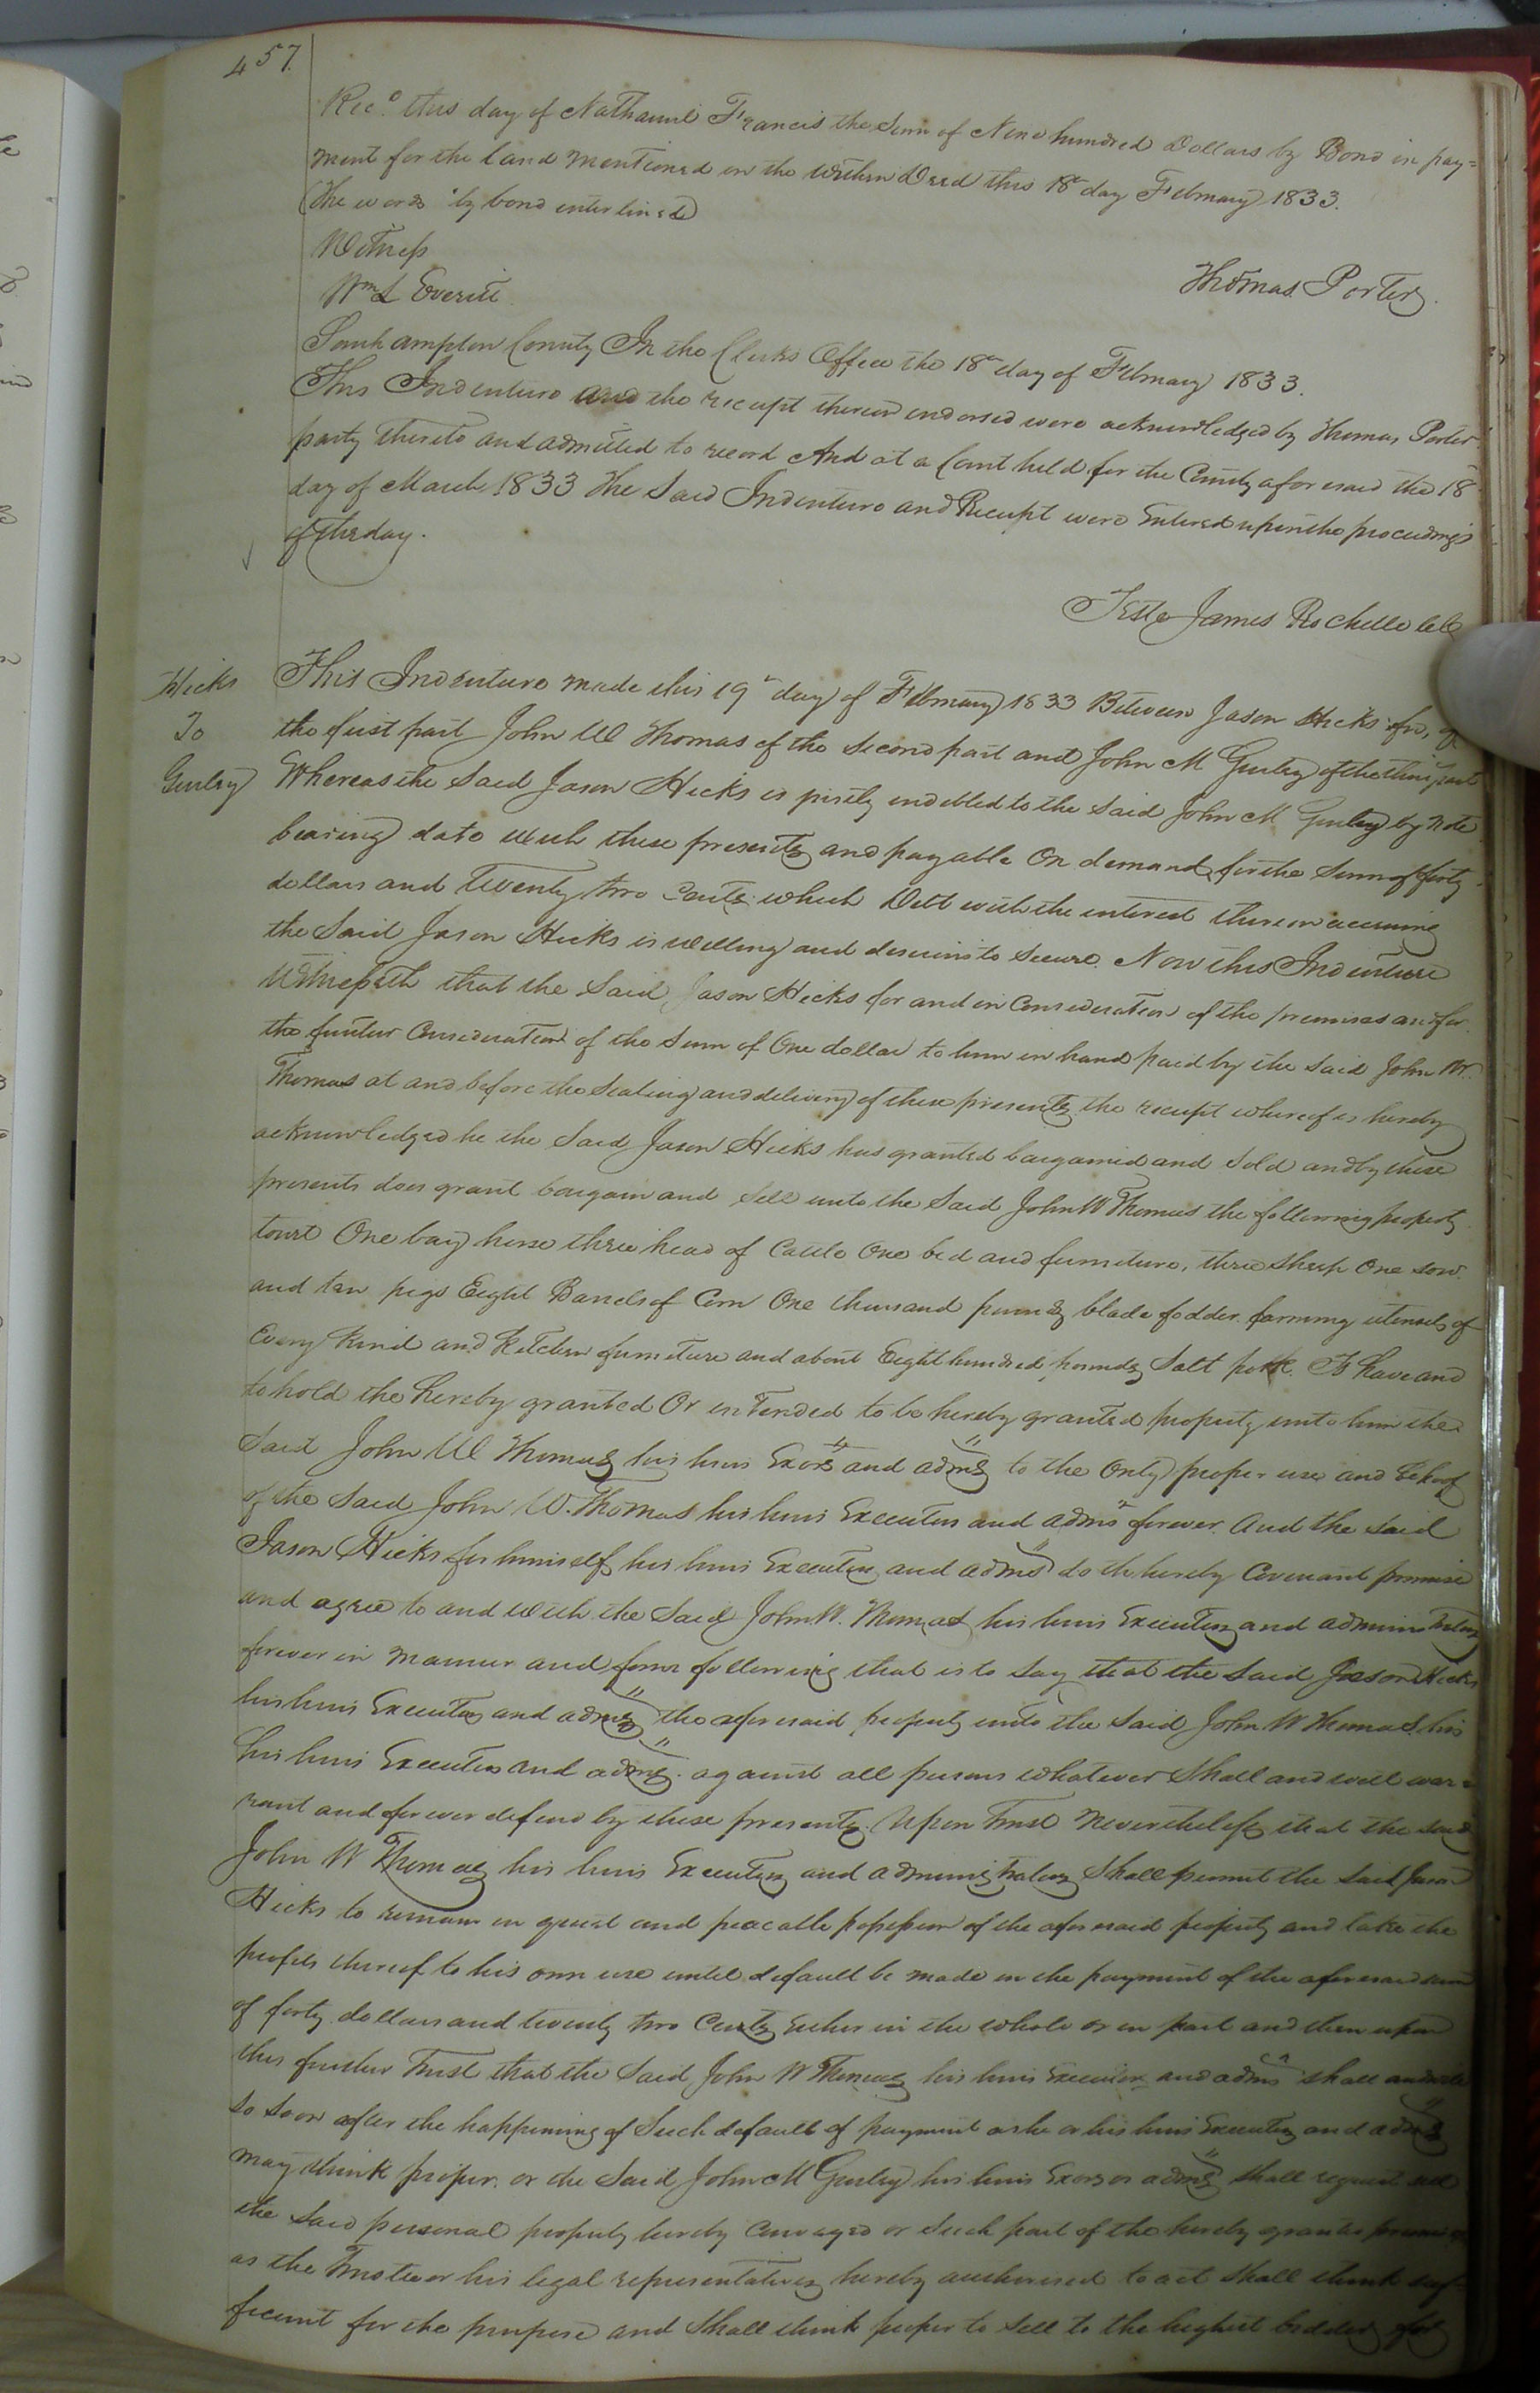 457.
Rec.d this day of Nathaniel Francis the Sum of Nine hundred Dollars by Bond in pay=
ment for the land mentioned in the within Deed this 18th day February 1833.
(The words "by bond interlined)
Witness
Wm L Everitt
Thomas Porter.
Southampton County In the Clerks Office the 18th day of February 1833.
This Indenture and the receipt thereon endorsed were acknowledged by Thomas Porter
party thereto and admitted to record And at a Court held for the County aforesaid the 18
day of March 1833 The Said Indenture and Receipt were Entered upon the proceedings
of the day.
Teste James Rochelle
Hicks
To
Gurley
This Indenture made this 19th day of February 1833 Between Jason Hicks of
the first part John W Thomas of the Second part and John M Gurley of the third part
Whereas the Said Jason Hicks is justly indebted to the Said John M Gurley by note
bearing date with these presents and payable On demand for the Sum of forty
dollars and Twenty two Cents which Debt with the interest thereon accruing
the Said Jason Hicks is willing and desirious to Secure. Now this Indenture
Witnesseth that the Said Jason Hicks for and in Consideration of the premises and for
the further Consideration of the Sum of One dollar to him in hand paid by the Said John W.
Thomas at and before the Sealing and delivery of these presents the receipt whereof is hereby
acknowledged he the Said Jason Hicks has granted bargained and Sold and by these
presents does grant bargain and Sell unto the Said John W Thomas the following property
towit One bay horse three head of Cattle One bed and furniture, three Sheep One sow
and ten pigs Eight Barrels of Corn One thousand pounds blade fodder farming utensils of
Every Kind and Kitchen furniture and about Eight hundred pounds Salt pork. To have and
to hold the hereby granted Or intended to be hereby granted property unto him the
Said John W Thomas his heirs Exors and adms to the Only proper use and behoof
of the Said John W. Thomas his heirs Executors and adms forever And the Said
Jason Hicks for himself his heirs Executors and adms doth hereby Covenant promise
and agree to and with the Said John W. Thomas his heirs Executors and administrators
forever in manner and form following that is to Say that the Said Jason Hicks
his heirs Executors and adms the aforesaid property unto the Said John W Thomas his
his heirs Executors and adms. against all persons whatever Shall and will war=
rant and forever defend by these presents. Upon Trust Nevertheless that the said
John W Thomas his heirs Executors and administrators Shall permit the Said Jason
Hicks to remain in quiet and peacable possession of the aforesaid property and take the
profits thereof to his own use until default be made in the payment of the aforesaid sum
of forty dollars and twenty two Cents Either in the whole or in part and then upon
this further Trust that the Said John W Thomas his heirs Executors and adms shall and will
so soon after the happening of Such default of payment as he or his heirs Executors and adms
may think proper. or the Said John M Gurley his heirs Exors or adms shall request sell
the Said personal property hereby Conveyed or Such part of the hereby granted premises
as the Trustee or his legal representatives hereby authorised to act Shall think suf-
ficient for the purpose and Shall think proper to Sell to the highest bidder for